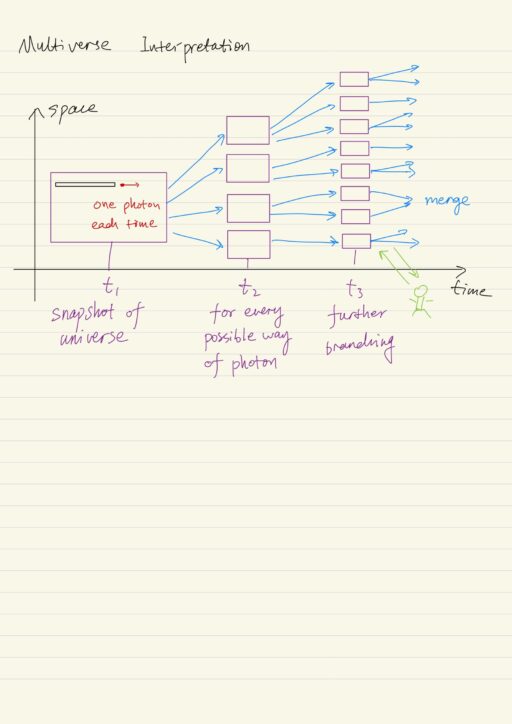 Multiverse Interpretation
space
one photon
each time
merge
t1
t2
t3
time
snapshot of
universe
for every
possible way
of photon
further
branching